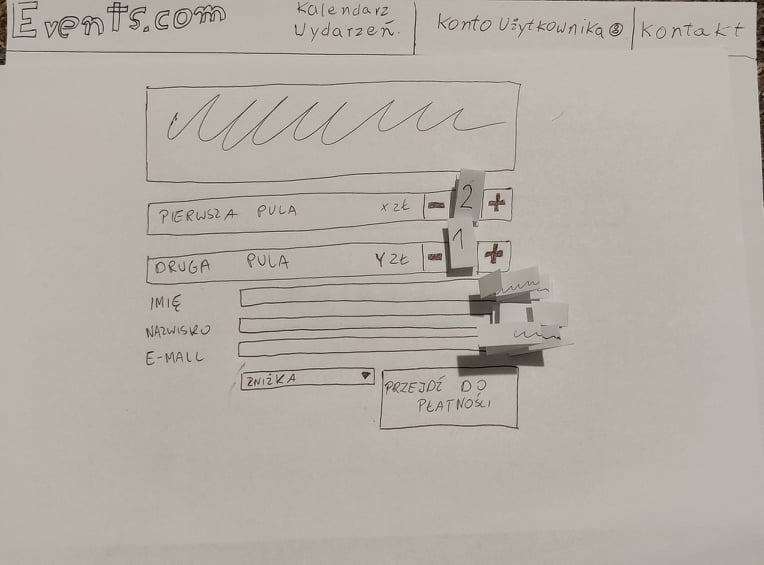 Events.com
Kalendarz
Wydarzeń.
Konto Użytkownika
Kontakt
PIERWSZA PULA x ZŁ - 2 +
DRUGA PULA Y ZŁ - 1 +
IMIĘ
NAZWISKO
E-MAIL
ZNIŻKA
PRZEJDŹ DO
PŁATNOŚCI